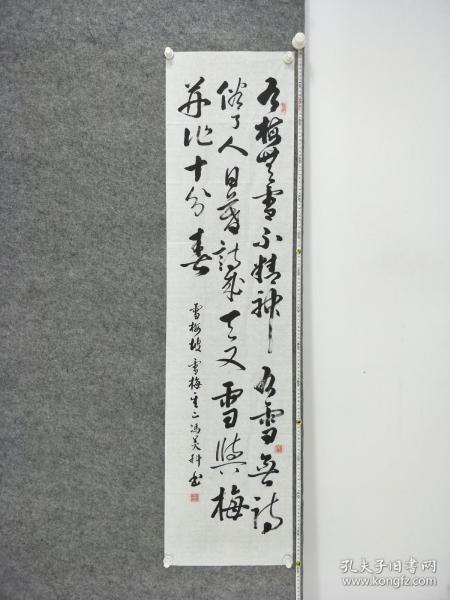 有梅無雪不精神有雪無詩
俗了人日暮詩成天又雪與梅
并作十分春
雪梅坡雪梅其二馮美科书
孔夫子旧书网
www.kongfz.com